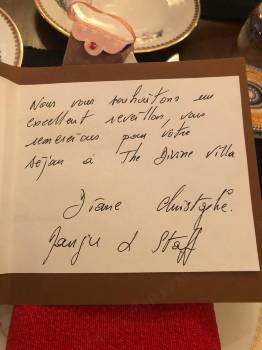 Nous vous souhaitons un
excellent reveillon, vous
remercions pour votre
séjour à The Divine Villa
Diane Christophe.
Manju & Staff